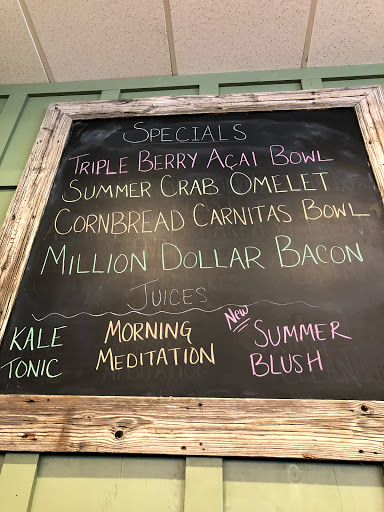 SPECIALS
TRIPLE BERRY AÇAI BOWL
SUMMER CRAB OMELET
CORNBREAD CARNITAS BOWL
MILLION DOLLAR BACON
JUICES
KALE TONIC
MORNING MEDITATION
NEW SUMMER BLUSH